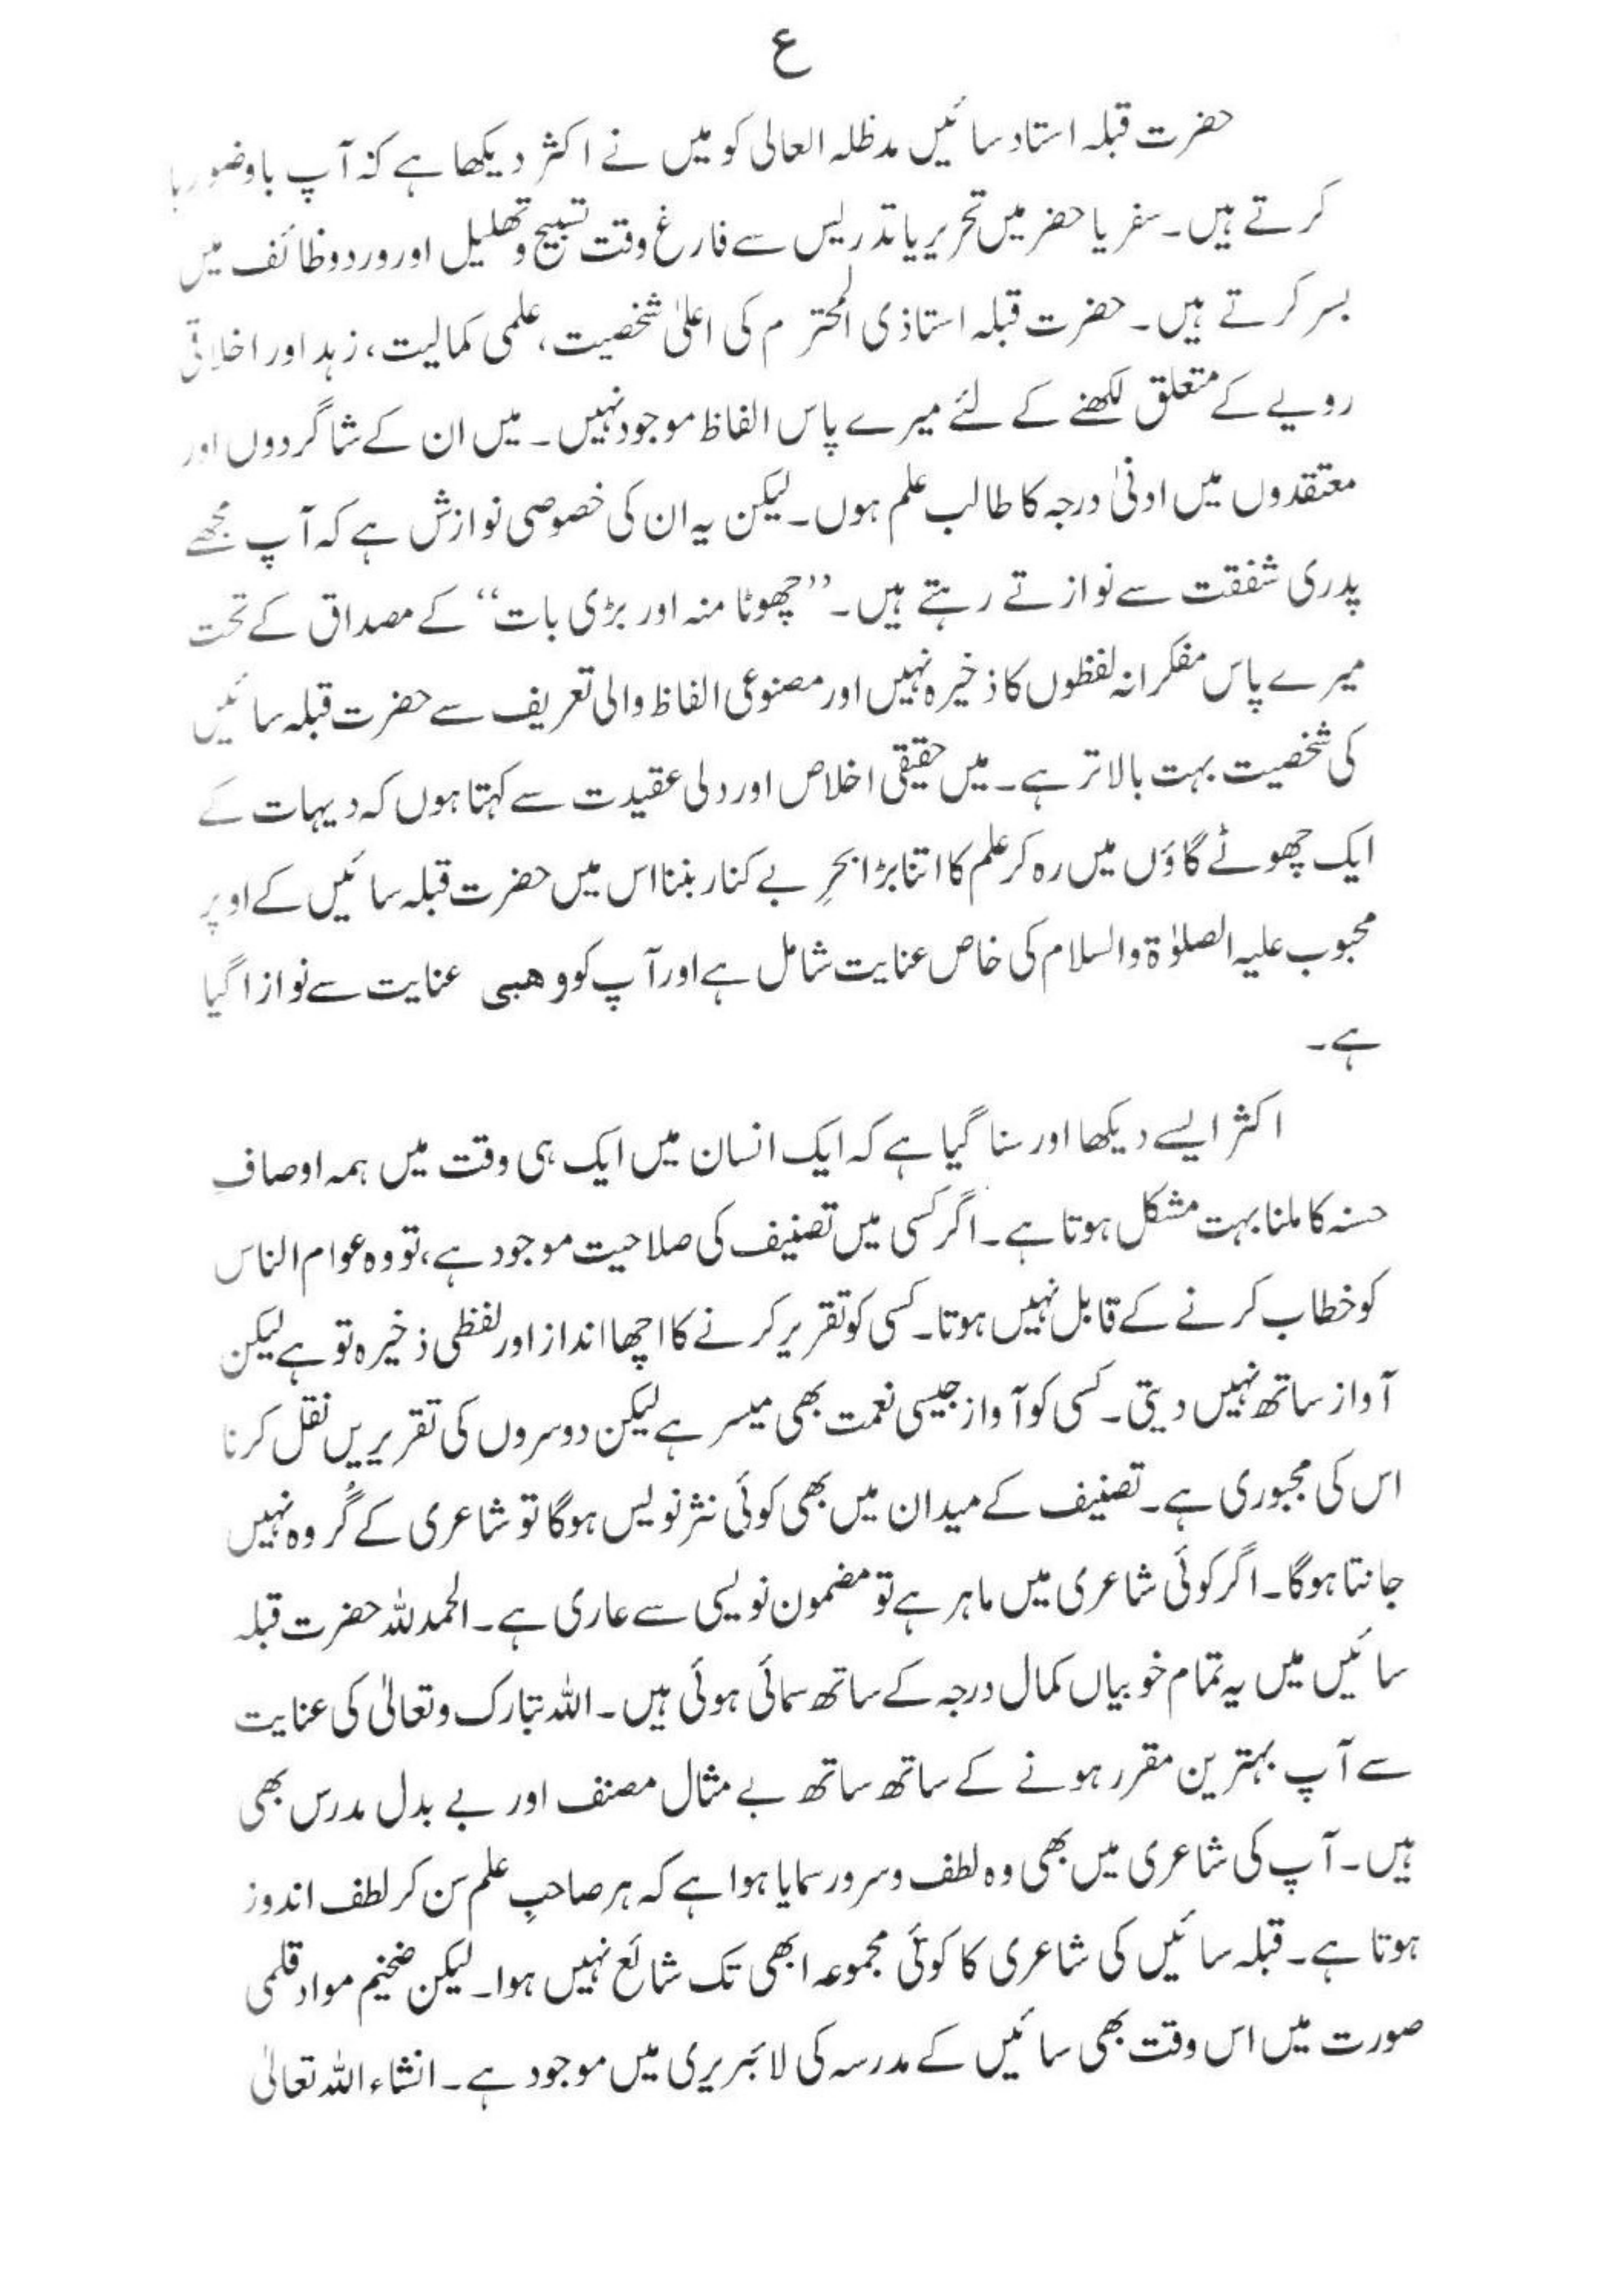 ع
حضرت قبلہ استاد سائیں مدظلہ العالی کو میں نے اکثر دیکھا ہے کہ آپ باوضو رہا
کرتے ہیں۔ سفر یا حضر میں تحریر یا تدریس سے فارغ وقت تسبیح و تھلیل اور ورد و وظائف میں
بسر کرتے ہیں۔ حضرت قبلہ استاذی المحترم کی اعلیٰ شخصیت، علمی کمالیت، زہد اور اخلاقی
رویے کے متعلق لکھنے کے لئے میرے پاس الفاظ موجود نہیں۔ میں ان کے شاگردوں اور
معتقدوں میں ادنیٰ درجہ کا طالب علم ہوں۔ لیکن یہ ان کی خصوصی نوازش ہے کہ آپ مجھے
پدری شفقت سے نوازتے رہتے ہیں۔ ”چھوٹا منہ اور بڑی بات“ کے مصداق کے تحت
میرے پاس مفکرانہ لفظوں کا ذخیرہ نہیں اور مصنوعی الفاظ والی تعریف سے حضرت قبلہ سائیں
کی شخصیت بہت بالاتر ہے۔ میں حقیقی اخلاص اور دلی عقیدت سے کہتا ہوں کہ دیہات کے
ایک چھوٹے گاؤں میں رہ کر علم کا اتنا بڑا بحرِ بے کنار بننا اس میں حضرت قبلہ سائیں کے اوپر
محبوب علیہ الصلوٰۃ والسلام کی خاص عنایت شامل ہے اور آپ کو وھبی عنایت سے نوازا گیا
ہے۔
اکثر ایسے دیکھا اور سنا گیا ہے کہ ایک انسان میں ایک ہی وقت میں ہمہ اوصافِ
حسنہ کا ملنا بہت مشکل ہوتا ہے۔ اگر کسی میں تصنیف کی صلاحیت موجود ہے، تو وہ عوام الناس
کو خطاب کرنے کے قابل نہیں ہوتا۔ کسی کو تقریر کرنے کا اچھا انداز اور لفظی ذخیرہ تو ہے لیکن
آواز ساتھ نہیں دیتی۔ کسی کو آواز جیسی نعمت بھی میسر ہے لیکن دوسروں کی تقریریں نقل کرنا
اس کی مجبوری ہے۔ تصنیف کے میدان میں بھی کوئی نثر نویس ہوگا تو شاعری کے گُر وہ نہیں
جانتا ہوگا۔ اگر کوئی شاعری میں ماہر ہے تو مضمون نویسی سے عاری ہے۔ الحمدللہ حضرت قبلہ
سائیں میں یہ تمام خوبیاں کمال درجہ کے ساتھ سمائی ہوئی ہیں۔ اللہ تبارک وتعالیٰ کی عنایت
سے آپ بہترین مقرر ہونے کے ساتھ ساتھ بے مثال مصنف اور بے بدل مدرس بھی
ہیں۔ آپ کی شاعری میں بھی وہ لطف و سرور سمایا ہوا ہے کہ ہر صاحبِ علم سن کر لطف اندوز
ہوتا ہے۔ قبلہ سائیں کی شاعری کا کوئی مجموعہ ابھی تک شائع نہیں ہوا۔ لیکن ضخیم مواد قلمی
صورت میں اس وقت بھی سائیں کے مدرسہ کی لائبریری میں موجود ہے۔ انشاء اللہ تعالیٰ